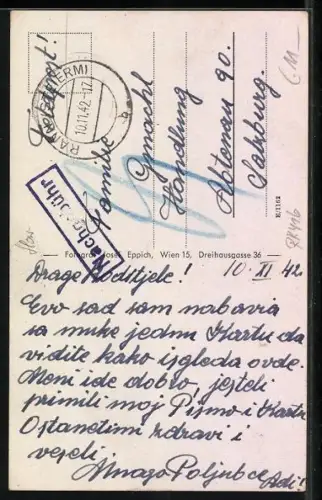 Feldpost!
RANN (STEIERM)
10.11.42.-17
b
Familie
Gmachl
Handlung
Abtenau 90.
Salzburg.
Nachgebühr
E/1162
Fotograf Josef Eppich, Wien 15, Dreihausgasse 36
Drage Roditjele! 10. XI 42.
Evo sad sam nabavia
sa muke jednu Kartu da
vidite kako izgleda ovde.
Meni ide dobro, jesteli
primili moj Pismo i Kartu
Ostanetimi zdravi i
veseli.
Mnago Poljubce Adi!